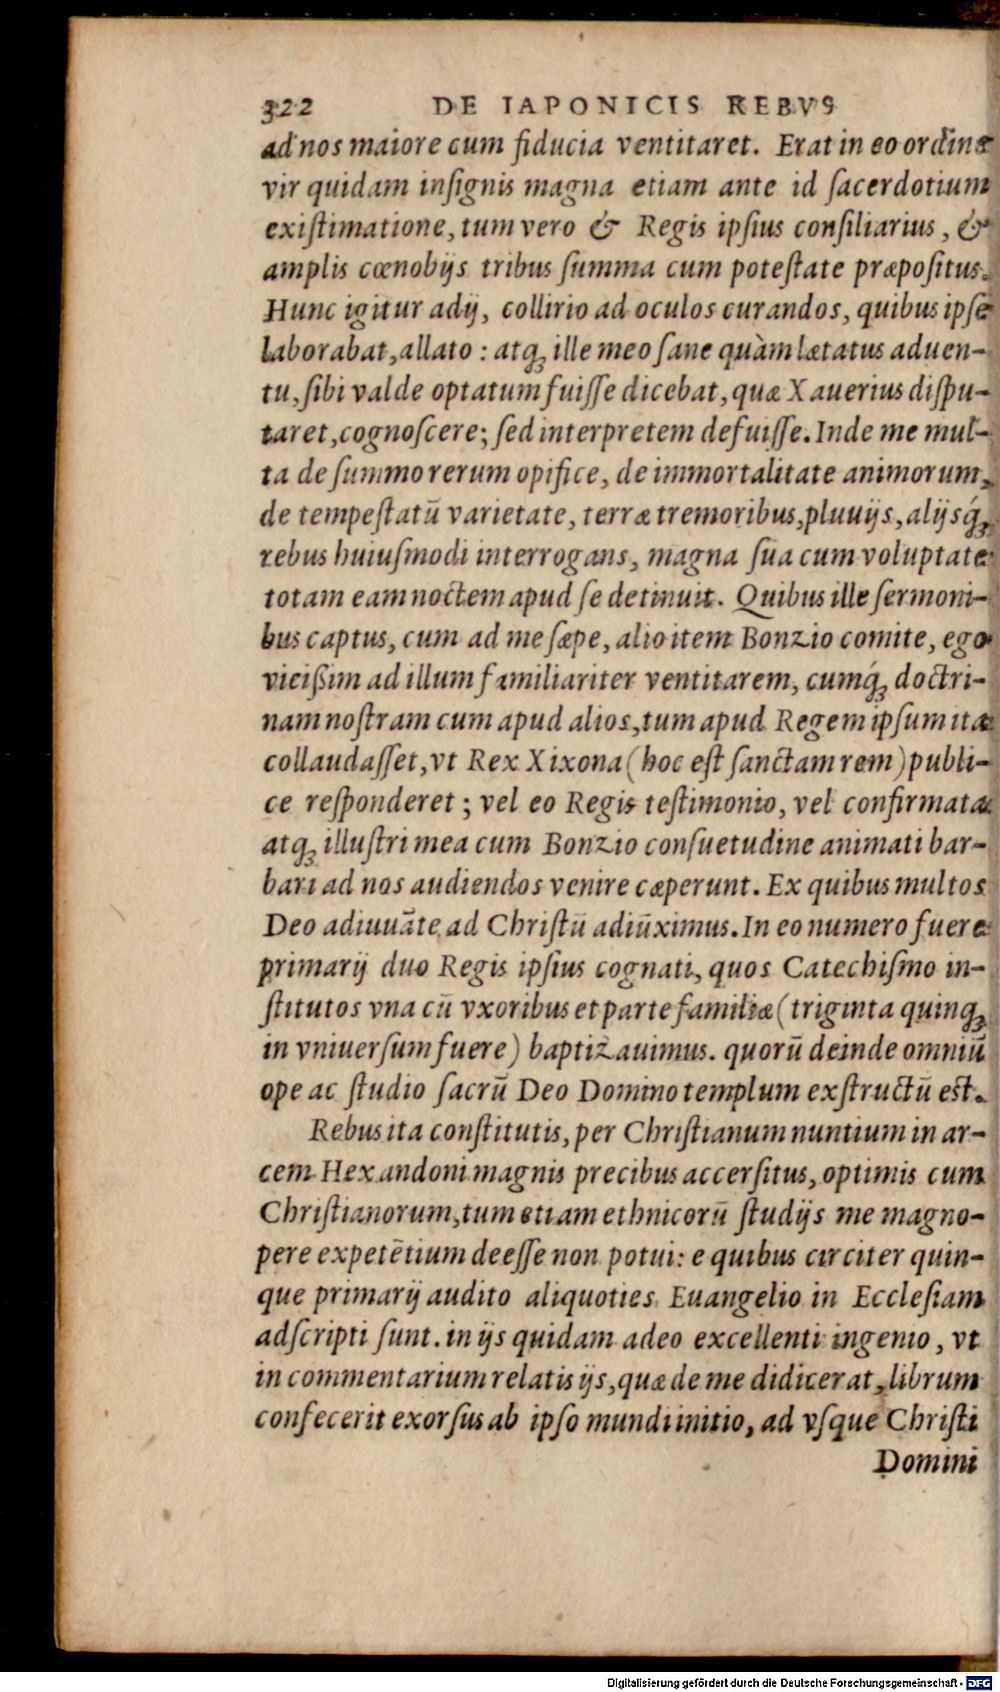 322 DE IAPONICIS REBVS
ad nos maiore cum fiducia ventitaret. Erat in eo ordine
vir quidam insignis magna etiam ante id sacerdotium
existimatione, tum vero & Regis ipsius consiliarius, &
amplis cœnobijs tribus summa cum potestate præpositus.
Hunc igitur adij, collirio ad oculos curandos, quibus ipse
laborabat, allato : atq; ille meo sane quàm lætatus aduen-
tu, sibi valde optatum fuisse dicebat, quæ Xauerius dispu-
taret, cognoscere; sed interpretem defuisse. Inde me mul-
ta de summo rerum opifice, de immortalitate animorum,
de tempestatū varietate, terræ tremoribus, pluuijs, alijsq́;
rebus huiusmodi interrogans, magna sua cum voluptate
totam eam noctem apud se detinuit. Quibus ille sermoni-
bus captus, cum ad me sæpe, alio item Bonzio comite, ego
vicißim ad illum familiariter ventitarem, cumq́; doctri-
nam nostram cum apud alios, tum apud Regem ipsum ita
collaudasset, vt Rex Xixona (hoc est sanctam rem) publi-
ce responderet ; vel eo Regis testimonio, vel confirmata
atq; illustri mea cum Bonzio consuetudine animati bar-
bari ad nos audiendos venire cæperunt. Ex quibus multos
Deo adiuuāte ad Christū adiūximus. In eo numero fuere
primarij duo Regis ipsius cognati, quos Catechismo in-
stitutos vna cū vxoribus et parte familiæ (triginta quinq;
in vniuersum fuere) baptizauimus. quorū deinde omniū
ope ac studio sacrū Deo Domino templum exstructū est.
Rebus ita constitutis, per Christianum nuntium in ar-
cem Hexandoni magnis precibus accersitus, optimis cum
Christianorum, tum etiam ethnicorū studijs me magno-
pere expetētium deesse non potui: e quibus circiter quin-
que primarij audito aliquoties Euangelio in Ecclesiam
adscripti sunt. in ijs quidam adeo excellenti ingenio, vt
in commentarium relatis ijs, quæ de me didicerat, librum
confecerit exorsus ab ipso mundi initio, ad vsque Christi
Domini
Digitalisierung gefördert durch die Deutsche Forschungsgemeinschaft - DFG